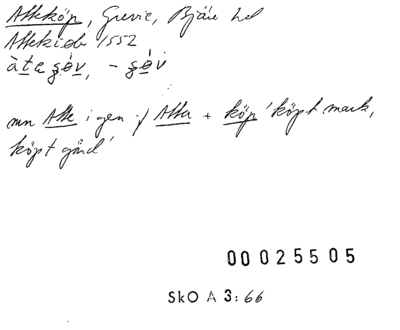 Atteköp, Grevie, Bjäre hd
Attekiöb 1552
àtaɡö́v, - ɡö́v
mn Atte i gen Atta + köp 'köpt mark,
köpt gård'
00 025505
SkO A 3:66